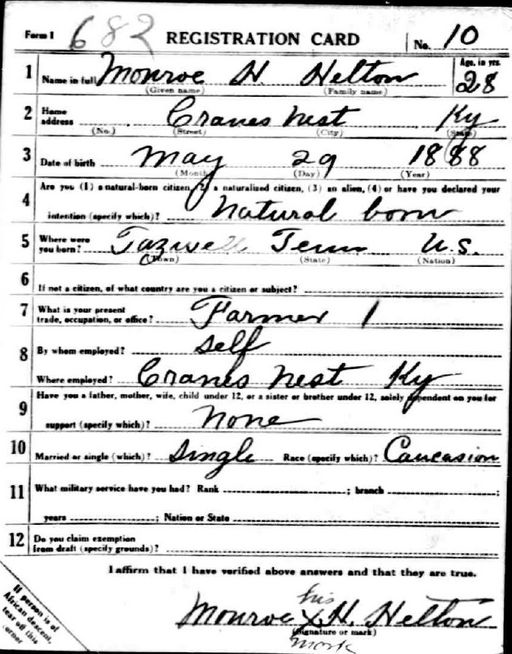 Form 1 682 REGISTRATION CARD No. 10
1 Name in full Monroe H Helton Age, in yrs. 28
(Given name) (Family name)
2 Home address Cranes Nest Ky
(No.) (Street) (City) (State)
3 Date of birth May 29 1888
(Month) (Day) (Year)
Are you (1) a natural-born citizen, (2) a naturalized citizen, (3) an alien, (4) or have you declared your
4 intention (specify which)? Natural born
5 Where were you born? Tazwell Tenn U.S.
(Town) (State) (Nation)
6 If not a citizen, of what country are you a citizen or subject?
7 What is your present trade, occupation, or office? Farmer 1
8 By whom employed? Self
Where employed? Cranes Nest Ky
9 Have you a father, mother, wife, child under 12, or a sister or brother under 12, solely dependent on you for
support (specify which)? None
10 Married or single (which)? Single Race (specify which)? Caucasion
11 What military service have you had? Rank ; branch ;
years ; Nation or State
12 Do you claim exemption from draft (specify grounds)?
I affirm that I have verified above answers and that they are true.
his
Monroe X H. Helton
(Signature or mark)
mark
If person is of
African descent,
tear off this
corner